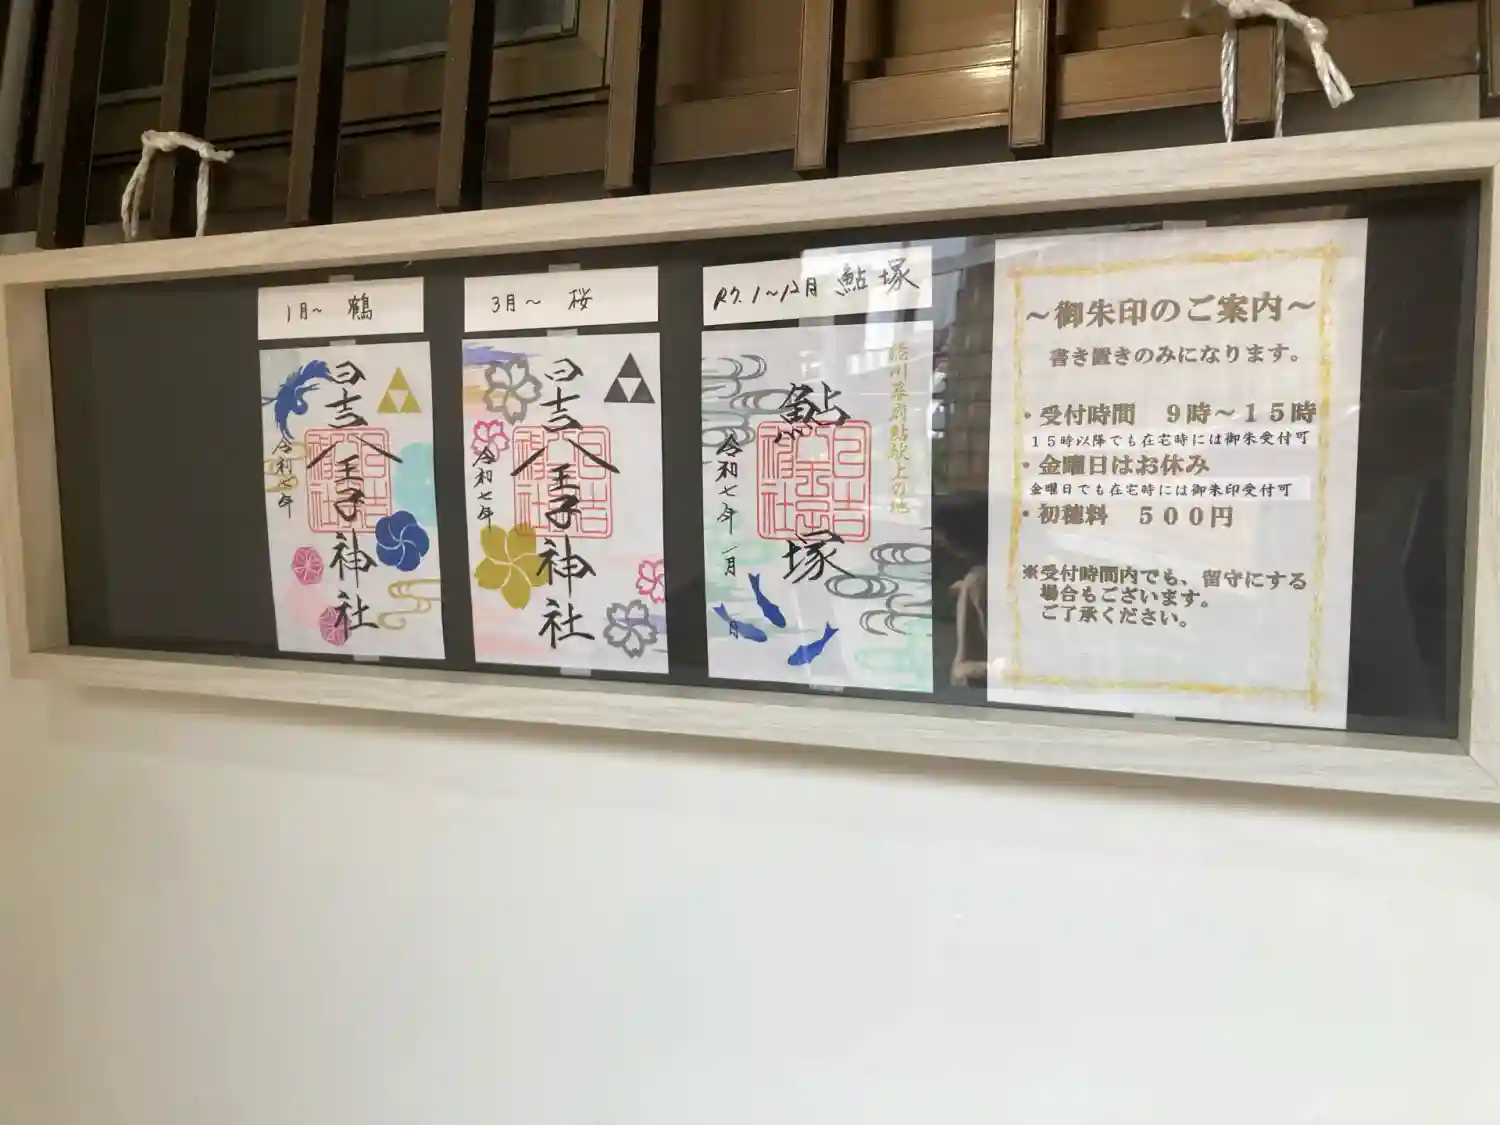 1月～ 鶴
日吉八王子神社
令和七年
3月～ 桜
日吉八王子神社
令和七年
R7.1～12月 鮎塚
徳川幕府鮎献上の地
鮎塚
令和七年 一月
日
～御朱印のご案内～
書き置きのみになります。
・受付時間 9時～15時
15時以降でも在宅時には御朱受付可
・金曜日はお休み
金曜日でも在宅時には御朱印受付可
・初穂料 500円
※受付時間内でも、留守にする
場合もございます。
ご了承ください。